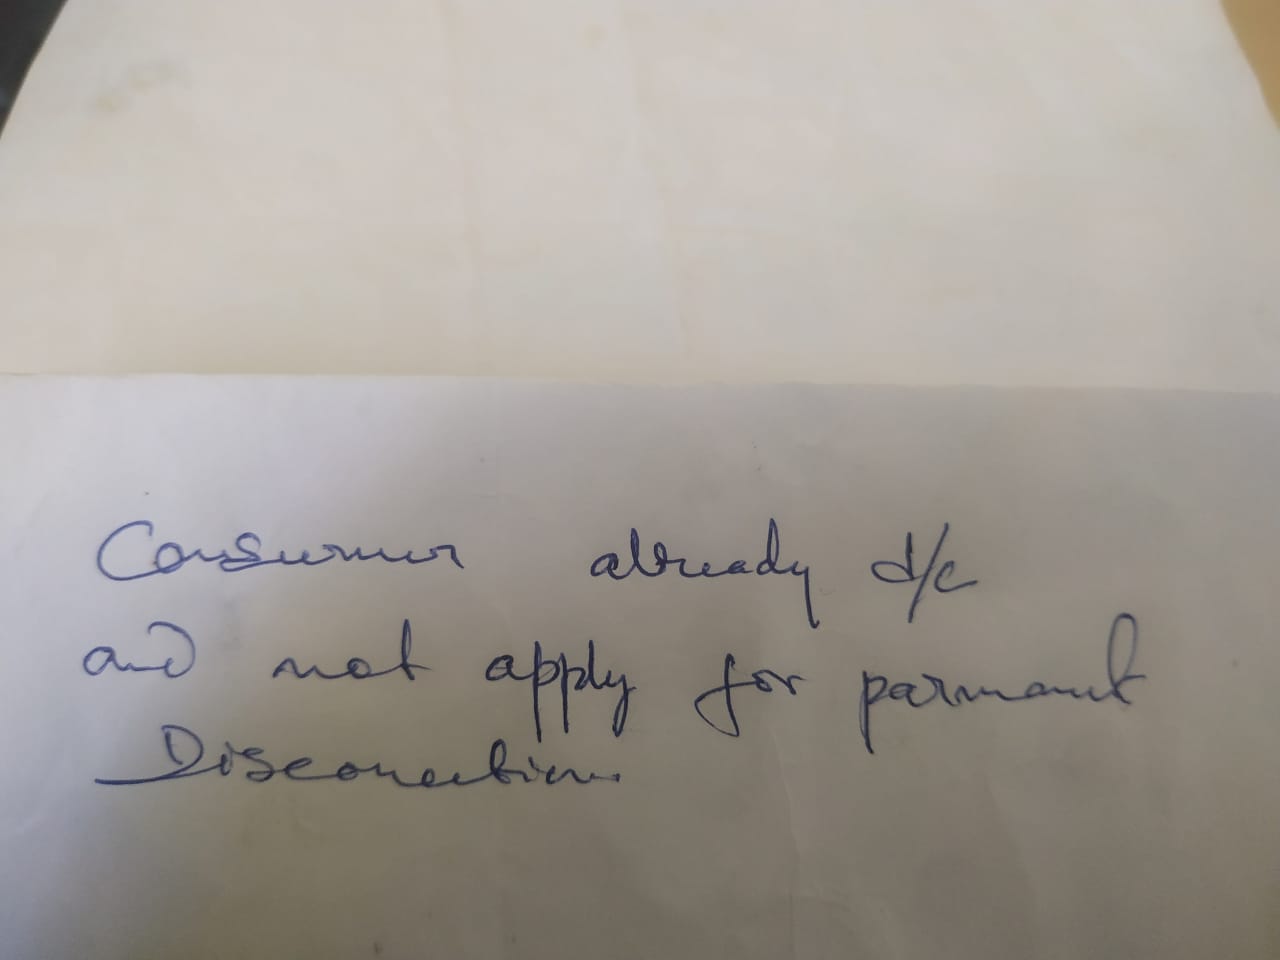 Consumer already d/c
and not apply for parmanut
Disconection.